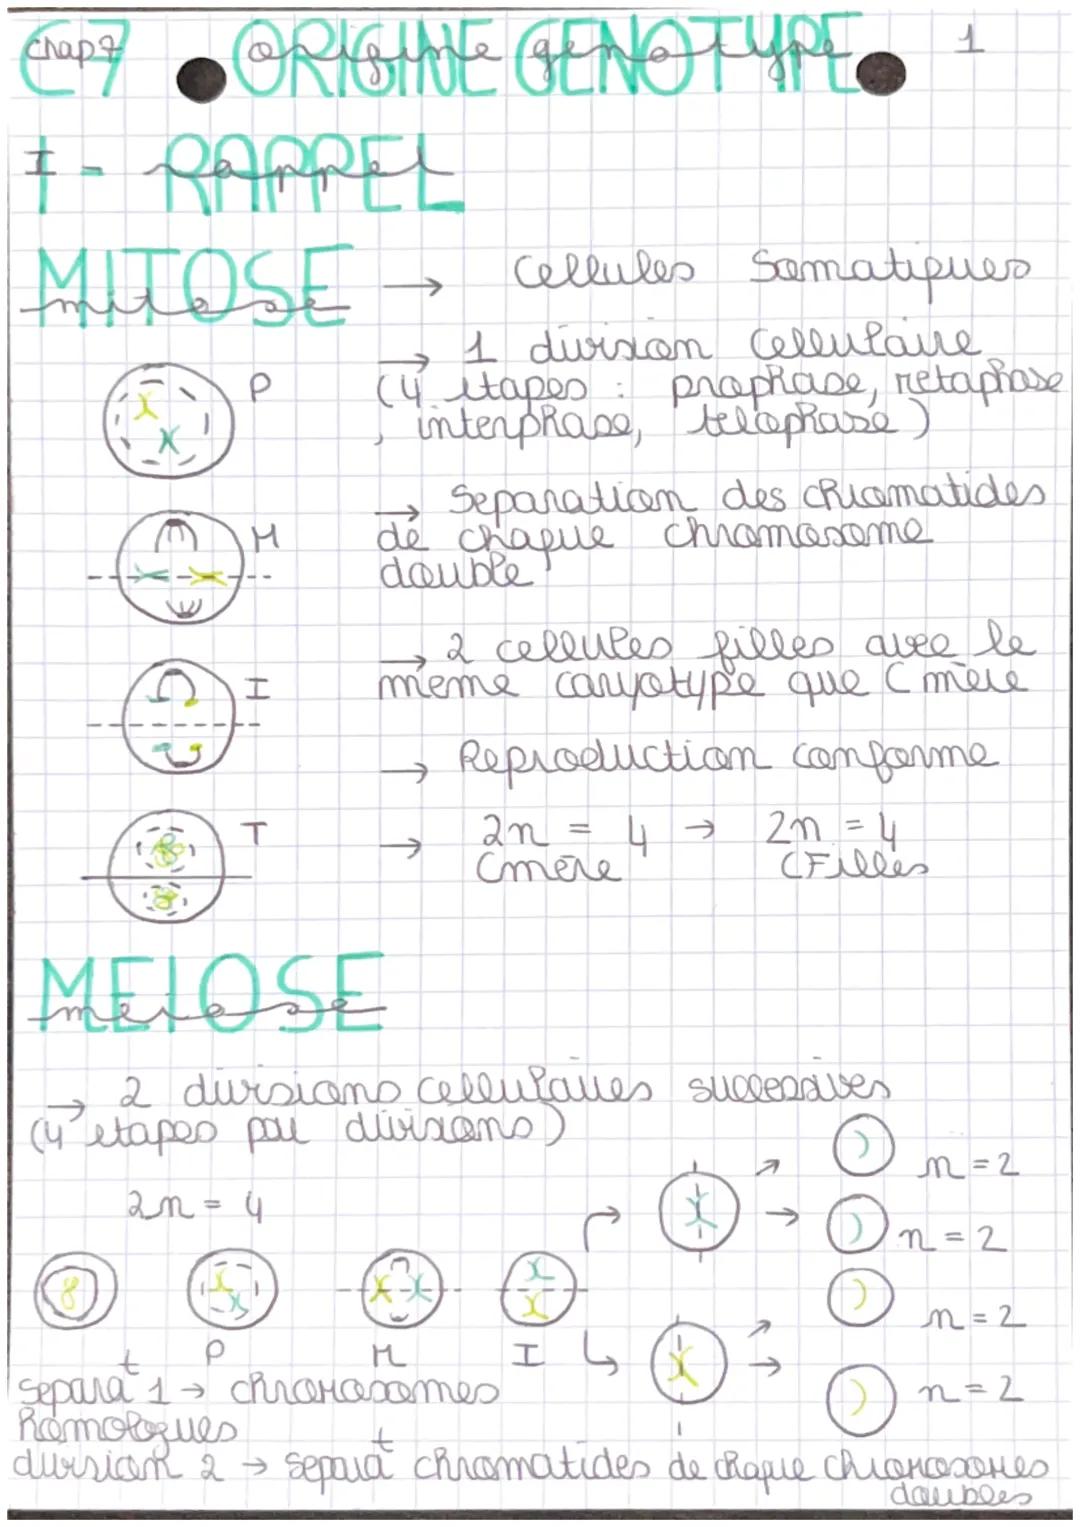 Chap 7 C7 ORIGINE GENOTYPE origine genotype 1
I - RAPPEL rappel
MITOSE mitose → cellules Somatiques
P → 1 division cellulaire
(4 étapes : prophase, métaphase
, interphase, télophase)
→ Separation des chromatides
M de chaque chromosome
double
→ 2 cellules filles avec le
I même caryotype que C mère
→ Reproduction conforme
T → 2n = 4 → 2n = 4
Cmère CFilles
MEIOSE meiose
→ 2 divisions cellulaires successives
(4 etapes par divisions)
n = 2
2n = 4
n = 2
n = 2
P M I
n = 2
separat 1 → chromosomes
Homologues
division 2 → separat chromatides de chaque chromosomes
doubles